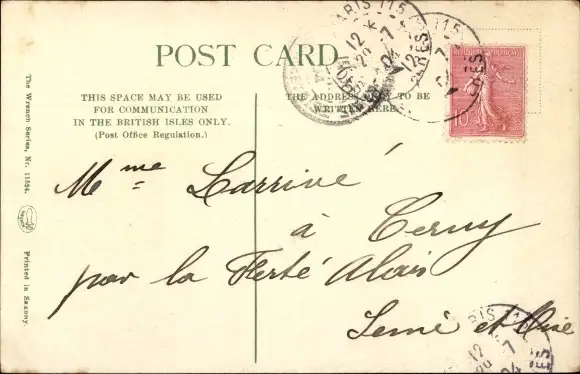 POST CARD
THIS SPACE MAY BE USED
FOR COMMUNICATION
IN THE BRITISH ISLES ONLY.
(Post Office Regulation.)
THE ADDRESS ONLY TO BE
WRITTEN HERE
PARIS 115
12
29 7
04
115
7
RÉPUBLIQUE FRANÇAISE
10
Mme Larrivé
à Cerny
par la Ferté Alais
Seine et Oise
The Wrench Series, Nr. 11834.
Printed in Saxony.
PARIS 115
12
29 7
04